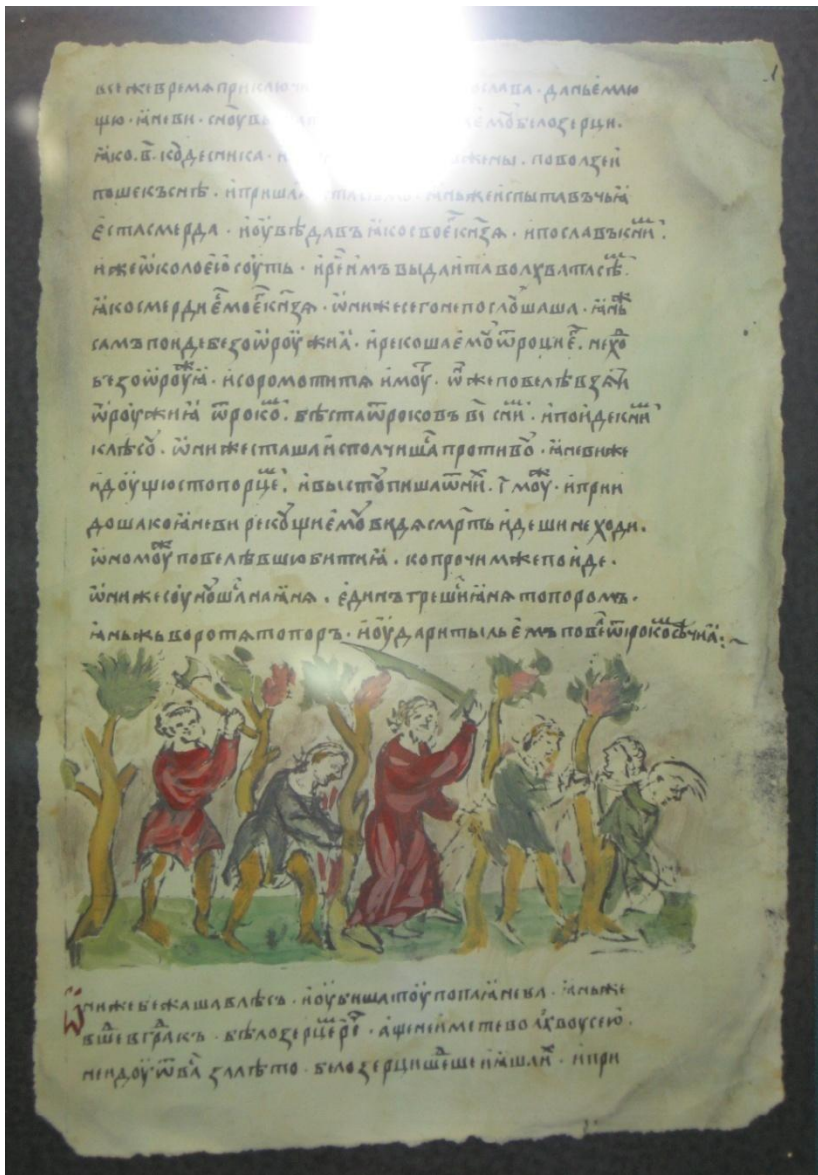 все же время приклю ослава · дань ємлю
щю · ꙗневи · сн҃оу вы ємоу белозерци ·
ꙗко · в҃ · кꙋдесника · жены · по волзеи
пошекъснѣ · и пришла ꙗнь же испытавъ чьꙗ
єста смерда · и оувѣдавъ ꙗко своє кнѧзѧ · и пославъ к ни ·
иже ѡколо єю соуть · и реч имъ выдаита волхва та сѣмо
ꙗко смерди ємоє кнѧзѧ · ѡни же сего не послꙋшаша · ꙗнь же
самъ поиде без ѡроужиꙗ · и рекоша ємꙋ ѿроци є҃ · не ход
без ѡроужꙗ · и соромотитѧ имоу · ѡн же повелѣ взѧти
ѡроужиꙗ ѿрокꙋ · бѣста ѿроковъ в҃і с ни · и поиде к ни
к лѣсꙋ · ѡни же сташа исполчишасѧ противꙋ · ꙗневи же
идоущю с топорце · и выстꙋпиша ѿ ни · г҃ моуж · и прии
доша ко ꙗневи рекꙋщи ємꙋ видѧ смрть идеши не ходи ·
ѡномоу повелѣвшю бити ꙗ · к прочим же поиде ·
ѡни же соунꙋшасѧ на ꙗнѧ · єдинъ грешиꙗнѧ топоромъ ·
ꙗнь жь воротѧ топоръ · и оудари тыльємъ повел ѿрокомъ сѣчи ꙗ :~
Ѡни же бежаша в лѣсъ · и оубиша тоу попа ꙗнева · ꙗнь же
вше в градъ · къ бѣлозерце реч · аще не имете волхвоу сею ·
не идоу ѿ ва за лѣто · белозерци шедше и ꙗша и · и при